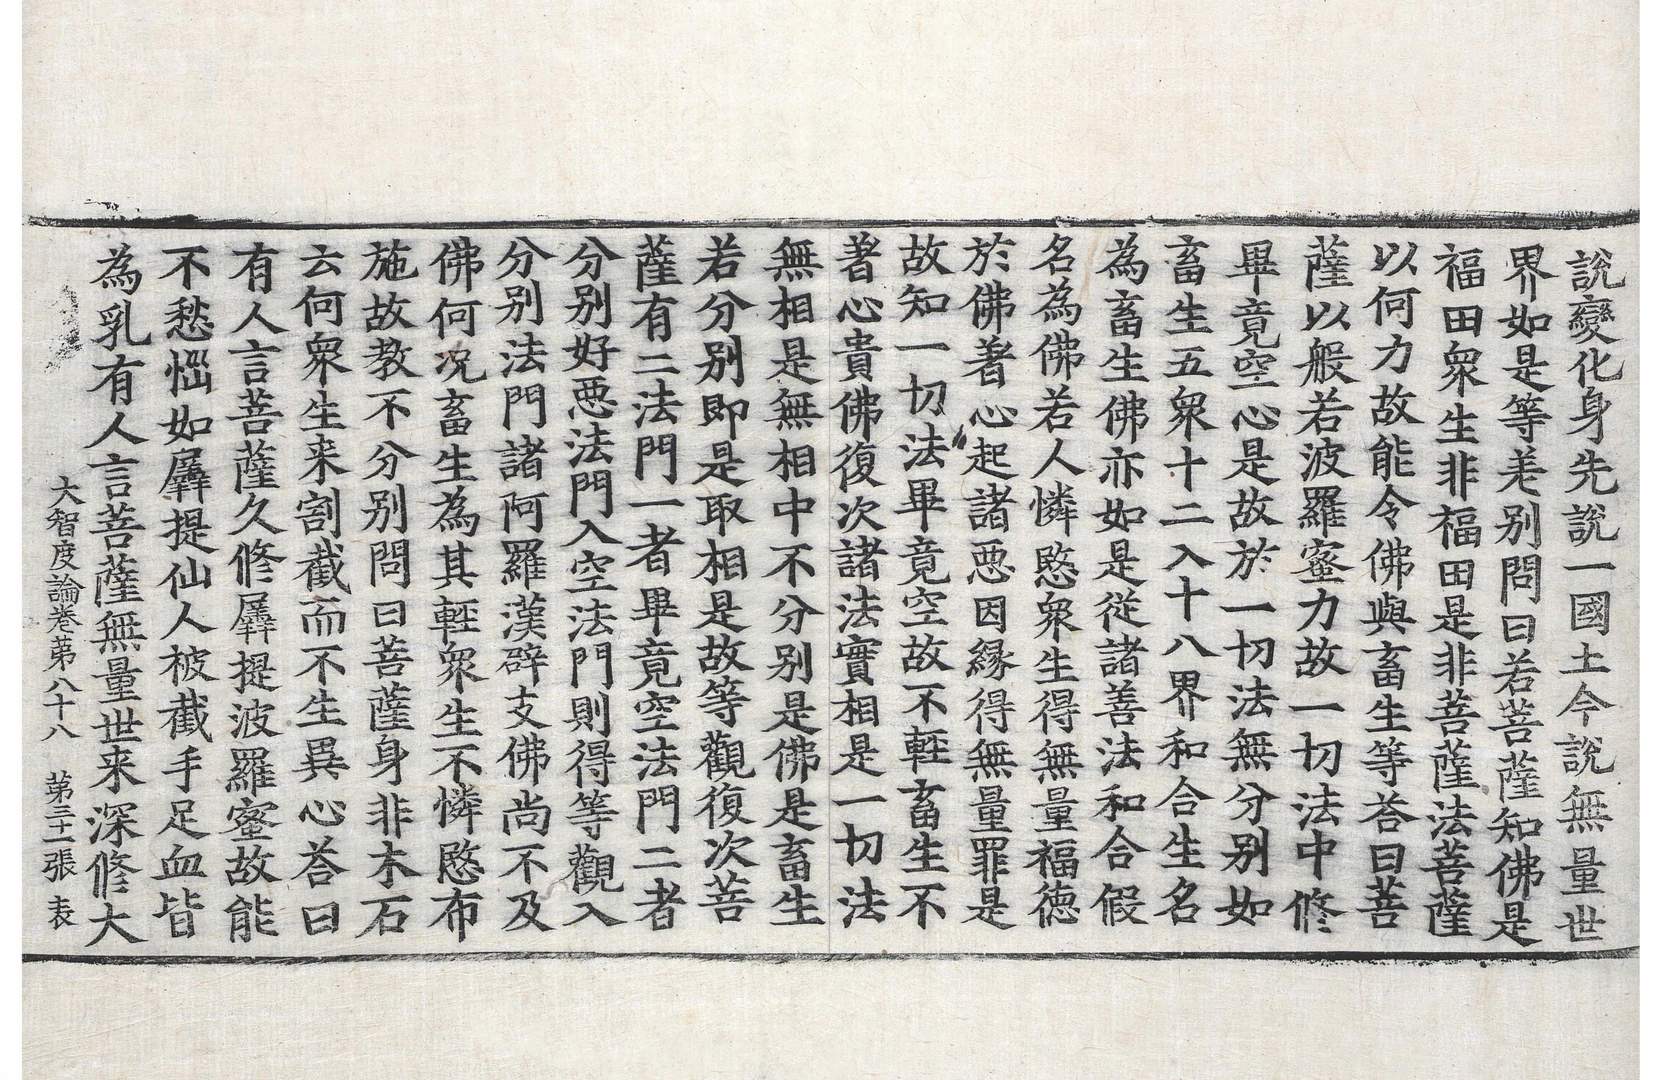 說變化身先說一國土今說無量世
界如是等差别問曰若菩薩知佛是
福田衆生非福田是非菩薩法菩薩
以何力故能令佛與畜生等荅曰菩
薩以般若波羅蜜力故一切法中修
畢竟空心是故於一切法無分别如
畜生五衆十二入十八界和合生名
為畜生佛亦如是從諸善法和合假
名為佛若人憐愍衆生得無量福德
於佛著心起諸惡因緣得無量罪是
故知一切法畢竟空故不輕畜生不
著心貴佛復次諸法實相是一切法
無相是無相中不分别是佛是畜生
若分别即是取相是故等觀復次菩
薩有二法門一者畢竟空法門二者
分别好惡法門入空法門則得等觀入
分别法門諸阿羅漢辟支佛尚不及
佛何况畜生為其輕衆生不憐愍布
施故教不分别問曰菩薩身非木石
云何衆生来割截而不生異心荅曰
有人言菩薩久修羼提波羅蜜故能
不愁惱如羼提仙人被截手足血皆
為乳有人言菩薩無量世来深修大
大智度論卷第八十八 第三十一張 表